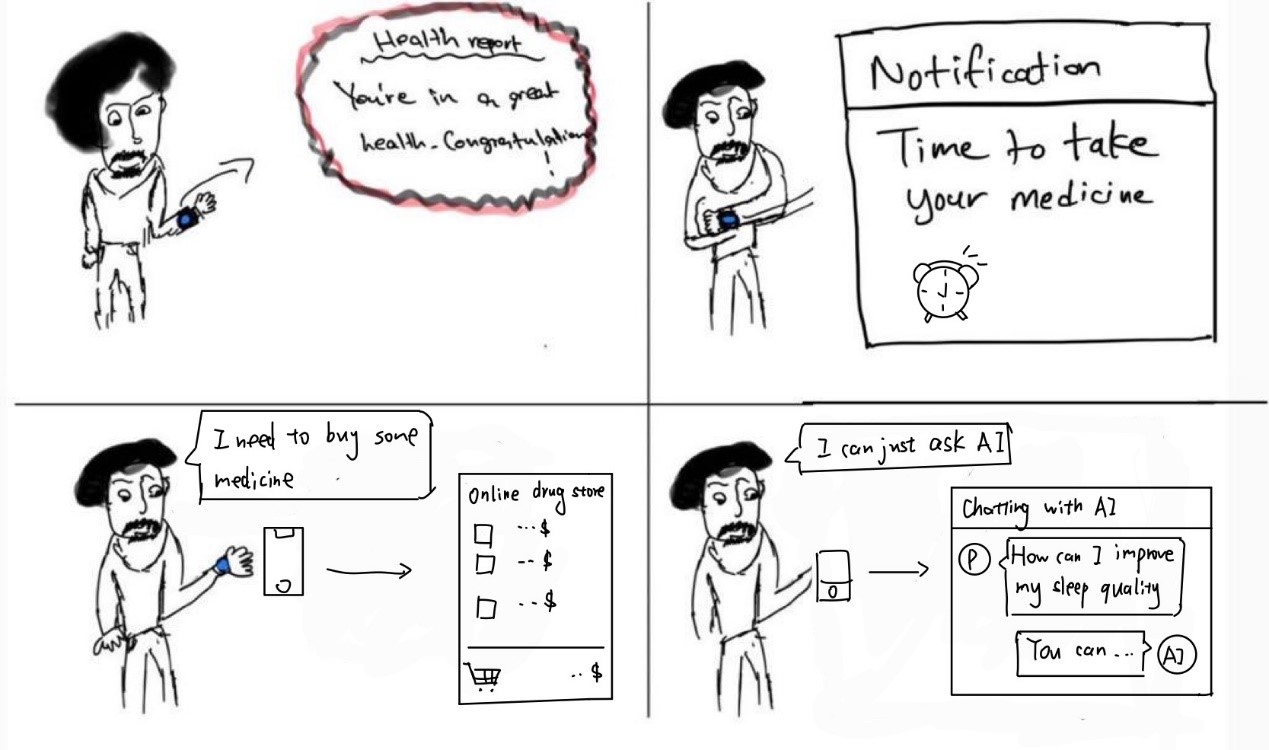 Health report
You're in a great
health. Congratulations
!
Notification
Time to take
your medicine
I need to buy some
medicine
Online drug store
...$
--$
..$
..$
I can just ask AI
Chatting with AI
P
How can I improve
my sleep quality
You can ...
AI